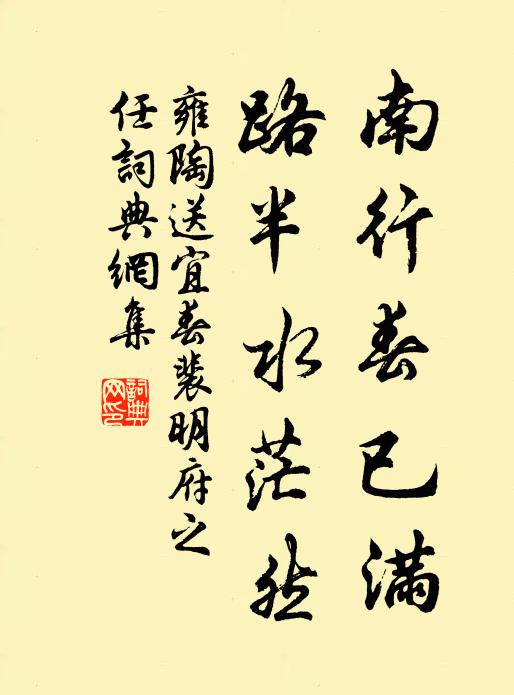 南行春已满
路半水茫然
雍陶送宜春裴明府之
任詞典網集
詞典
网印